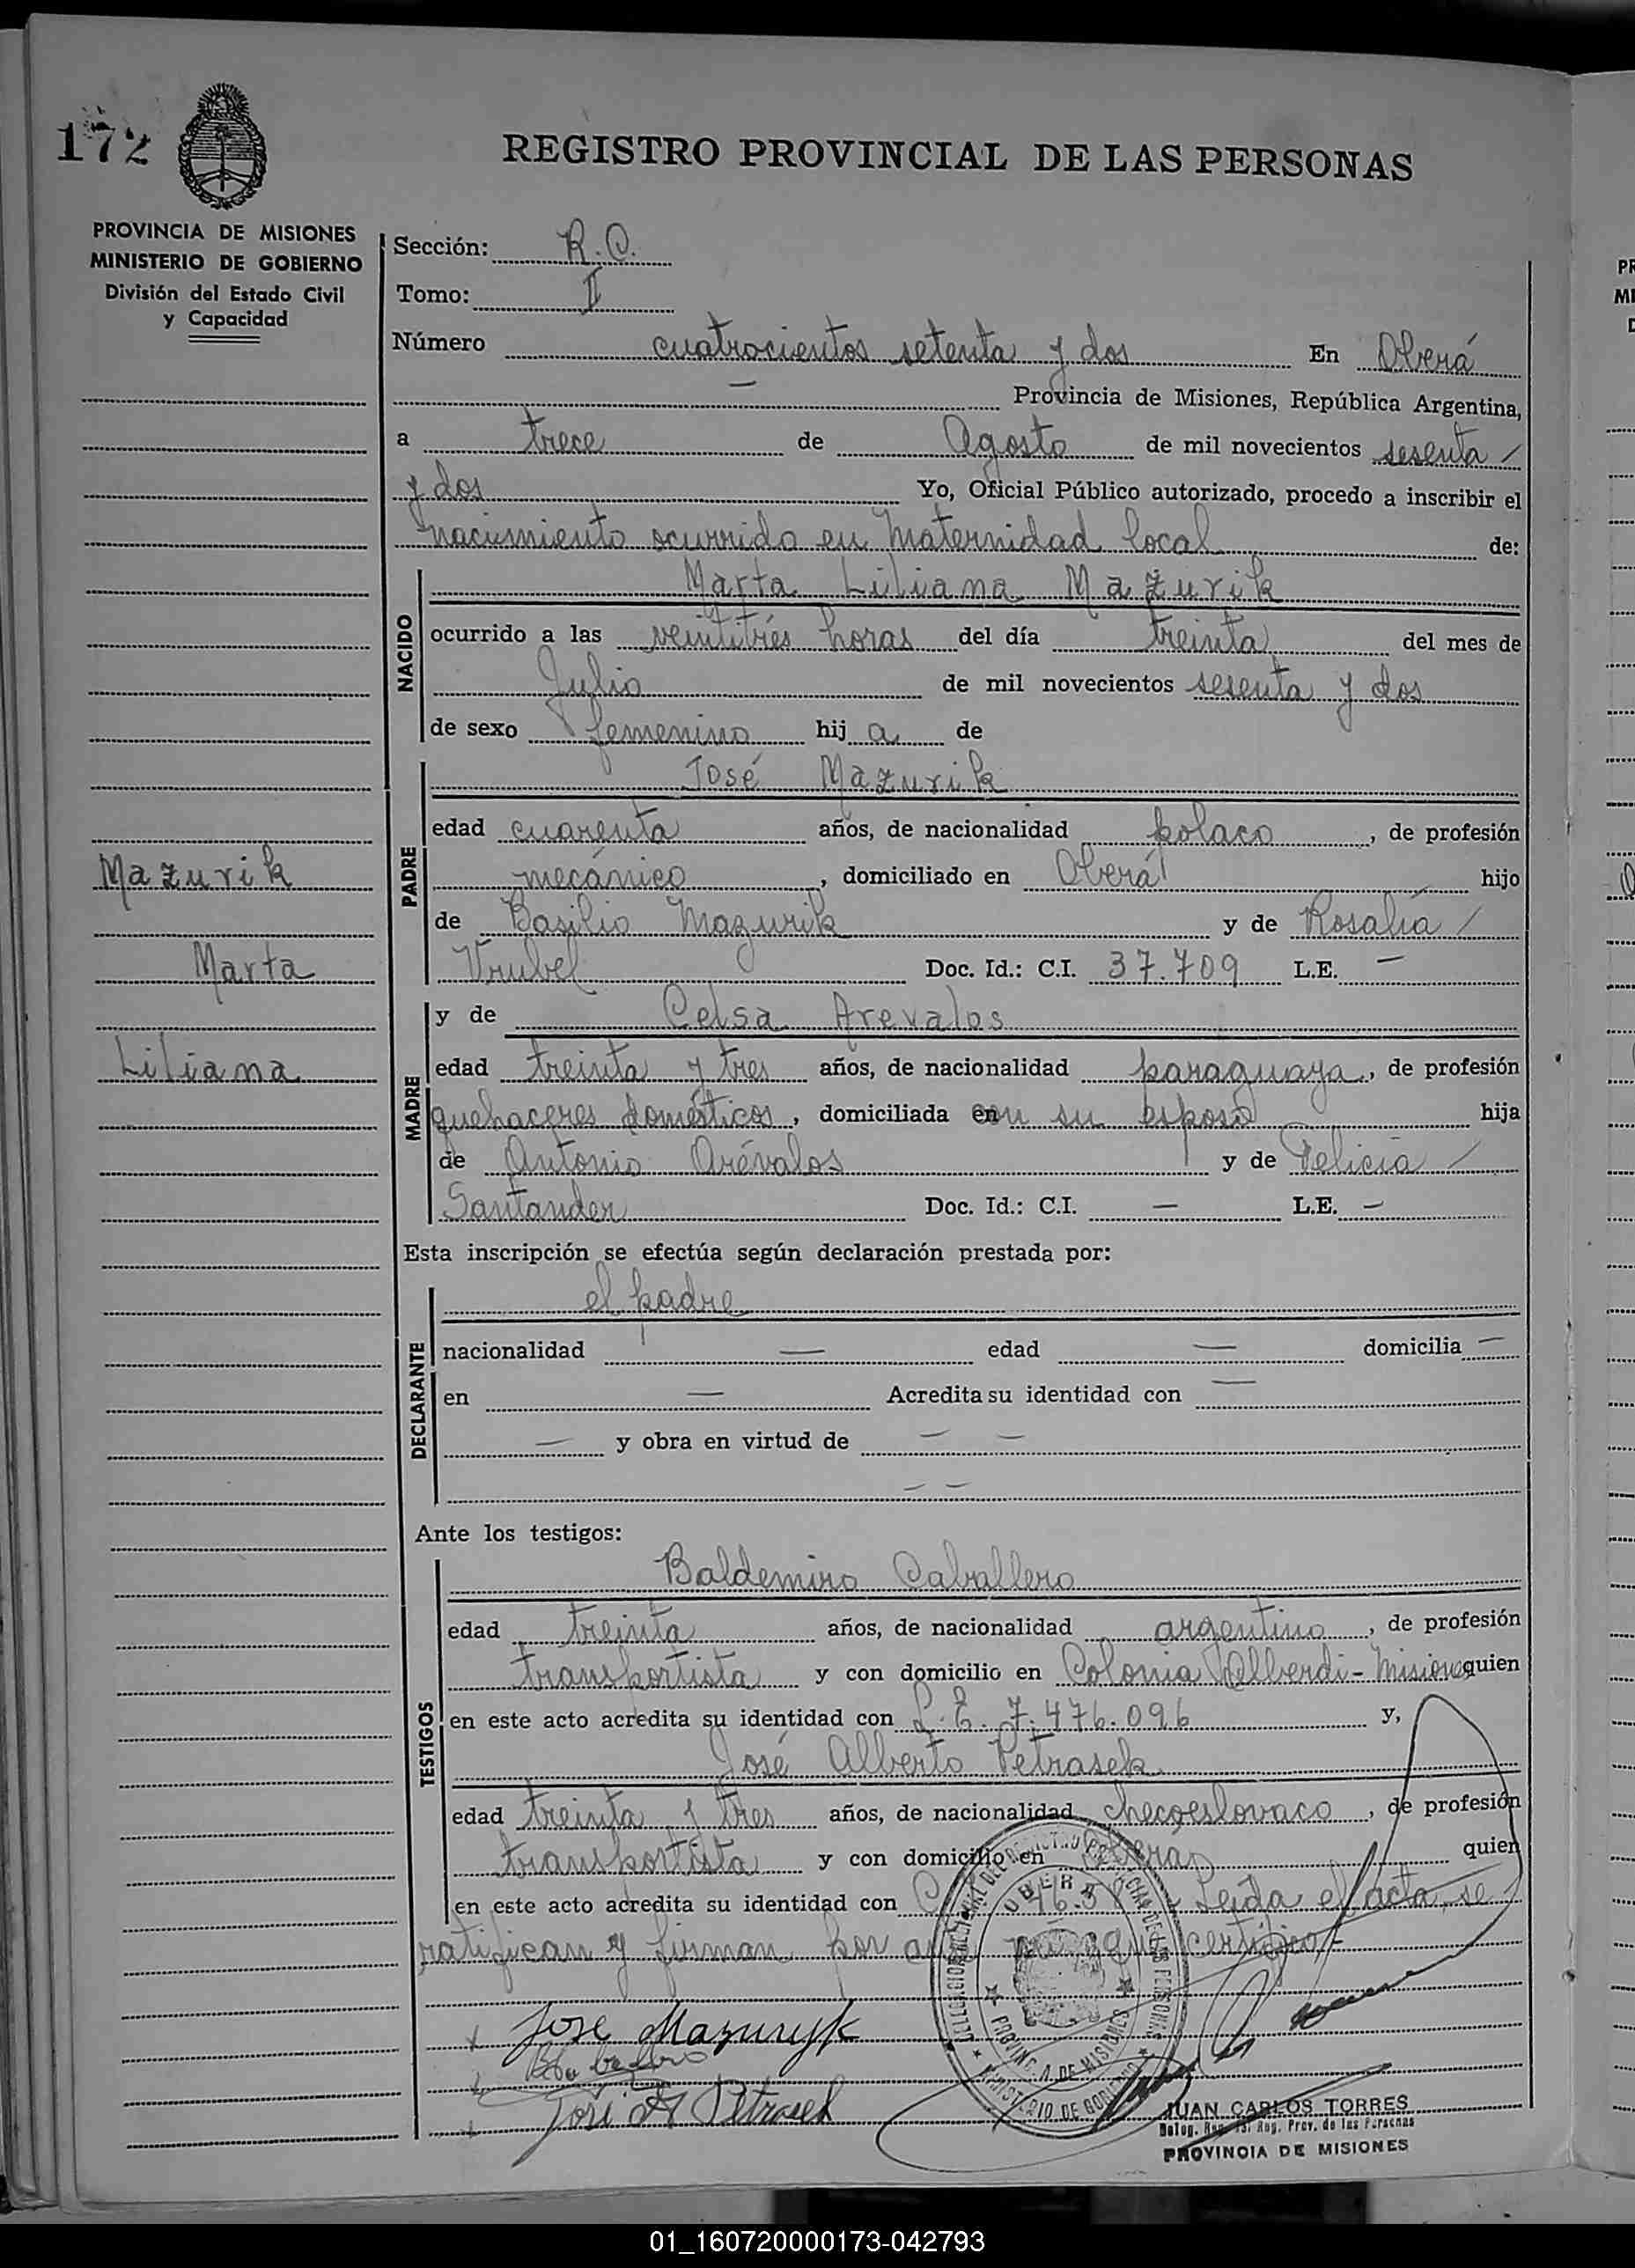 172
REGISTRO PROVINCIAL DE LAS PERSONAS
PROVINCIA DE MISIONES
MINISTERIO DE GOBIERNO
División del Estado Civil
y Capacidad
Sección: R.C.
Tomo: II
Número cuatrocientos setenta y dos En Oberá
— Provincia de Misiones, República Argentina,
a trece de Agosto de mil novecientos sesenta /
y dos Yo, Oficial Público autorizado, procedo a inscribir el
nacimiento ocurrido en Maternidad local de:
NACIDO
Marta Liliana Mazurik
ocurrido a las veintitrés horas del día treinta del mes de
Julio de mil novecientos sesenta y dos
de sexo femenino hij a de
PADRE
José Mazurik
edad cuarenta años, de nacionalidad polaco, de profesión
mecánico, domiciliado en Oberá hijo
de Basilio Mazurik y de Rosalía /
Vrubel Doc. Id.: C.I. 37.709 L.E. —
Mazurik
Marta
Liliana
MADRE
y de Celsa Arevalos
edad treinta y tres años, de nacionalidad paraguaya, de profesión
quehaceres domésticos, domiciliada con su esposo hija
de Antonio Arévalos y de Felicia /
Santander Doc. Id.: C.I. — L.E. —
Esta inscripción se efectúa según declaración prestada por:
DECLARANTE
el padre
nacionalidad — edad — domicilia —
en — Acredita su identidad con —
— y obra en virtud de — —
— —
Ante los testigos:
TESTIGOS
Baldemiro Caballero
edad treinta años, de nacionalidad argentino, de profesión
transportista y con domicilio en Colonia Alberdi - Misiones quien
en este acto acredita su identidad con L.E. 7.476.096 y,
José Alberto Petrasek
edad treinta y tres años, de nacionalidad checoeslovaco, de profesión
transportista y con domicilio en Oberá quien
en este acto acredita su identidad con Leída el acta, se
ratifican y firman por ante mi que certifico.-
x Jose Mazuryk
José A Petrasek
OBERA
PROVINCIA DE MISIONES
MINISTERIO DE GOBIERNO
JUAN CARLOS TORRES
Deleg. Reg. Prov. de las Personas
PROVINCIA DE MISIONES
01_160720000173-042793